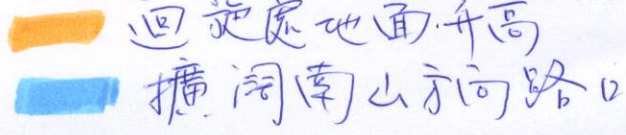 迴旋處地面升高
擴闊南山方向路口